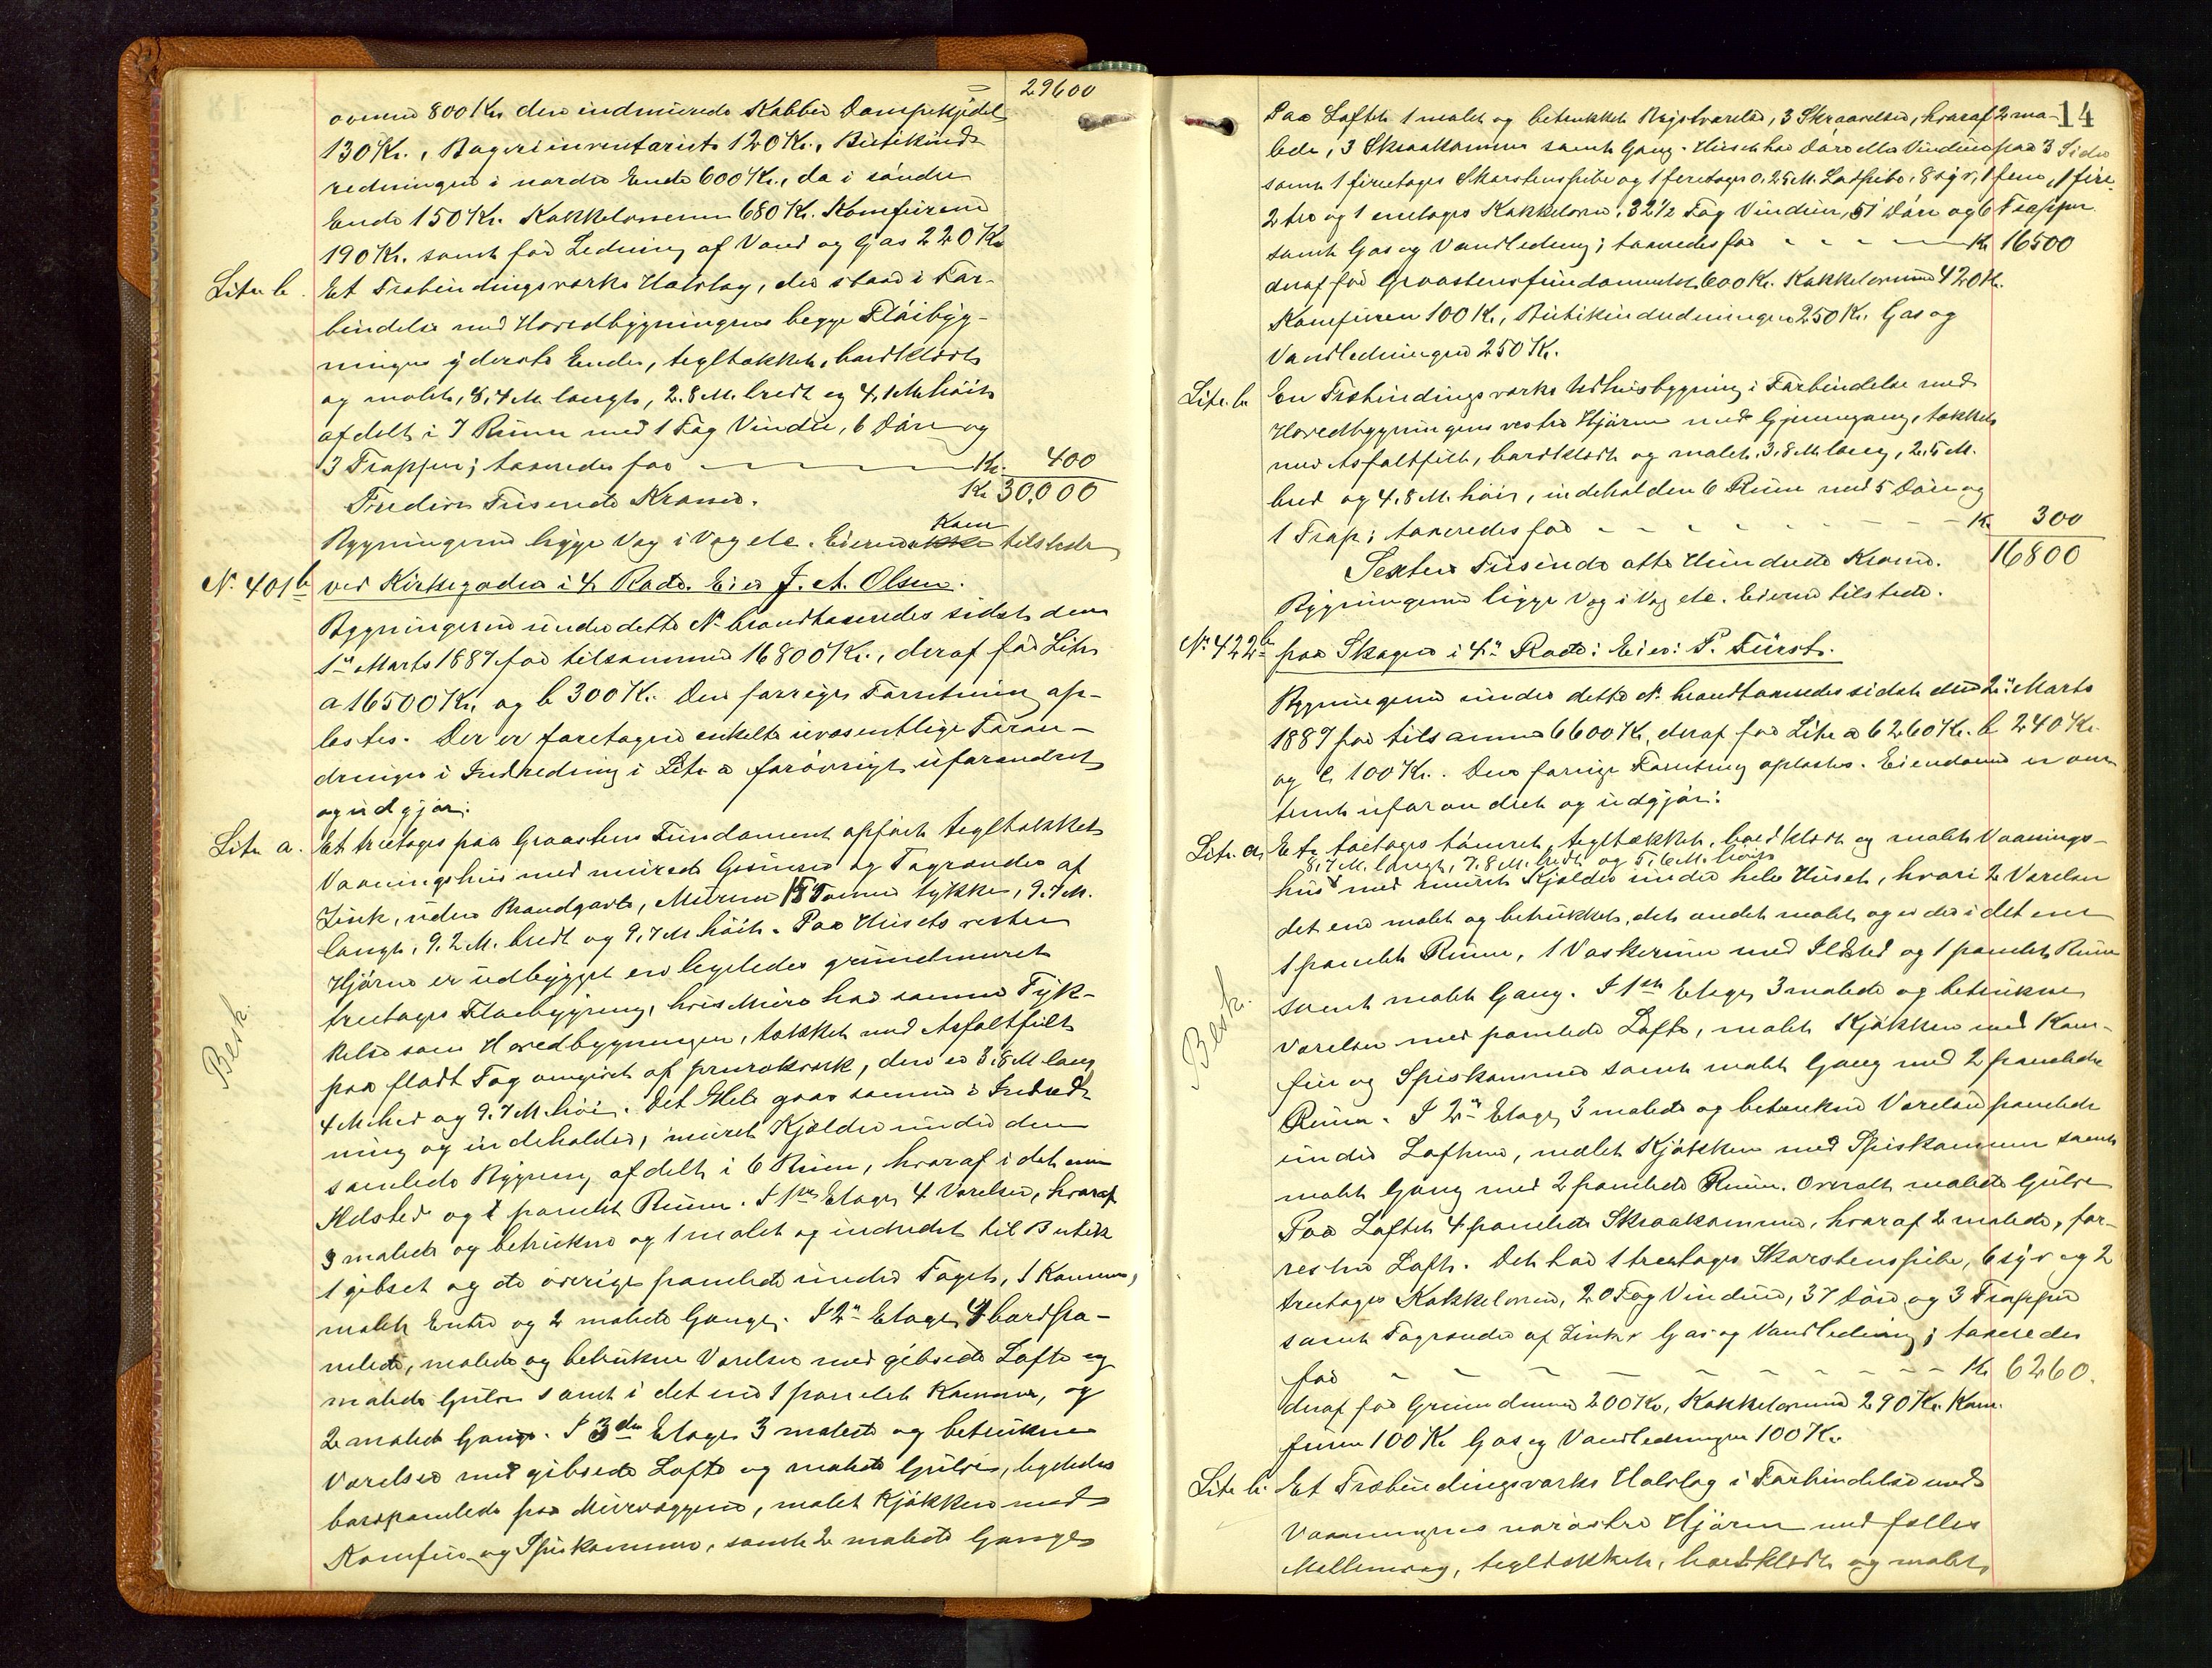 29600
ovnene 800 Kr. den indmurede Kobber Dampekjedel
130 Kr., Bageriinventariet 120 Kr., Butikind-
redningen i nordre Ende 600 Kr., do i söndre
Ende 150 Kr. Kakkelovnene 680 Kr. Komfurene
190 Kr. samt for Ledning af Vand og Gas 220 Kr.
Litr. b. Et Træbindingsværks Halvtag, der staar i For-
bindelse med Hovedbygningens begge Flöibyg-
ninger yderste Ender, tegltækket, bordklædt
og malet, 8,4 M. langt, 2.8 M. bredt og 4,1 M. höit
afdelt i 7 Rum med 1 Fag Vindu, 6 Döre og
3 Trapper; taxeredes for Kr. 400
Tredive Tusende Kroner. Kr. 30,000
Bygningerne ligge Væg i Væg etc. Eieren ikke Kom tilstede
No. 401b ved Kirkegaden i 4 Rode. Eier J. A. Olsen.
Bygningerne under dette No. brandtaxeredes sidst den
1ste Marts 1887 for tilsammen 16800 Kr., deraf for Litr.
a 16500 Kr. og b 300 Kr. Den forrige Forretning op-
læstes. Der er foretaget enkelte uvæsentlige Foran-
dringer i Indredning i Litr. a forövrigt uforandret
og udgjör:
Litr. a. Et treetages paa Graastens Fundament opfört tegltækket
Vaaningshus med murede Gesimser og Tagrender af
Zink, uden Brandgavle, Murene 15 Tommer tykke, 9.7 M.
langt, 9.2 M. bredt og 9,7 M. höit. Paa Husets vestre
Hjörne er udbygget en ligeledes grundmuret
treetages Flöibygning, hvis Mure har samme Tyk-
kelse som Hovedbygningen, tækket med Asfaltfilt
paa fladt Tag omgivet af , den er 3.8 M. lang
4 M. bred og 9.7 M. höi. Det Hele gaar sammen i Indred-
ning og indeholder, muret Kjelder under den
samlede Bygning afdelt i 6 Rum, hvoraf i det ene
Ildsted og 1 panelet Rum. I 1ste Etage 4 Værelser, hvoraf
3 malede og betrukne og 1 malet og indredet til Butik
1 gibset og de övrige panelede under Taget, 1 Kammer,
malet Entre og 2 malede Gange. I 2den Etage 4 bordpa-
nelede, malede og betrukne Værelser med gibsede Lofte og
malede Gulve samt i det ene 1 panelet Kammer, og
2 malede Gange. I 3die Etage 3 malede og betrukne
Værelser med gibsede Lofte og malede Gulve, ligeledes
bordpanelede paa Murvæggene, malet Kjökken med
Komfur og Spiskammer, samt 2 malede Gange
Besk.
14
Paa Loftet 1 malet og betrukket Kvistværelse, 3 Skraaværelser, hvoraf 2 ma-
lede, 3 Skraakammere samt Gang. Huset har Döre eller Vinduer paa 3 Sider
samt 1 fireetages Skorstenspibe og 1 fireetages 0,25 M. Lodpibe, 8 syv, 1 fem, 1 fire,
2 tre og 1 enetages Kakkelovne, 32 1/2 Fag Vinduer, 51 Döre og 6 Trapper
samt Gas og Vandledning; taxeredes for Kr. 16500
deraf for Graastensfundamentet 600 Kr. Kakkelovnene 420 Kr.
Komfuren 100 Kr., Butikindredningen 250 Kr. Gas og
Vandledningen 250 Kr.
Litr. b. En Træbindingsværks Udhusbygning i Forbindelse med
Hovedbygningens vestre Hjörne med Gjennemgang, tækket
med Asfaltfilt, bordklædt og malet, 3.8 M. lang, 2.5 M.
bred og 4.8 M. höi, indeholder 6 Rum med 5 Döre og
1 Trap; taxeredes for Kr. 300
Sexten Tusinde otte Hundrede Kroner. 16800
Bygningerne ligge Væg i Væg etc. Eieren tilstede.
No. 422b paa Skagen i 4de Rode: Eier: P. Fürst.
Bygningerne under dette No. brandtaxeredes sidst den 2den Marts
1887 for tilsammen 6600 Kr., deraf for Litr. a 6260 Kr. b 240 Kr.
og c 100 Kr. Den forrige Forretning oplæstes. Eiendommen er om-
trent uforandret og udgjör:
Litr. a. Et toetages tömret, tegltækket, bordklædt og malet Vaanings-
8,7 M. langt, 7.8 M. bredt og 5,6 M. höit
hus med muret Kjelder under hele Huset, hvori 2 Værelser
det ene malet og betrukket, det andet malet, og er der i det ene
1 panelet Rum, 1 Vaskerum med Ildsted og 1 panelet Rum
samt malet Gang. I 1ste Etage, 3 malede og betrukne
Værelser med panelede Lofte, malet Kjökken med Kom-
fur og Spiskammer samt malet Gang med 2 panelede
Rum. I 2den Etage, 3 malede og betrukne Værelser panelede
under Loftene, malet Kjökken med Spiskammer samt
malet Gang med 2 panelede Rum. Overalt malede Gulve
Paa Loftet 4 panelede Skraakammere, hvoraf 2 malede, for-
resten Loft. Det har 1 treetages Skorstenspibe, 6 syv og 2
treetages Kakkelovne, 20 Fag Vinduer, 37 Döre og 3 Trapper
samt Tagrender af Zink & Gas og Vandledning; taxeredes
for Kr. 6260.
deraf for Grundmuren 200 Kr., Kakkelovnene 290 Kr. Kom-
furen 100 Kr. Gas og Vandledningen 100 Kr.
Litr. b. Et Træbindingsværks Halvtag i Forbindelse med
Vaaningens noröstre Hjörne med fælles
Mellemvæg, tegltækket, bordklædt og malet,
Besk.